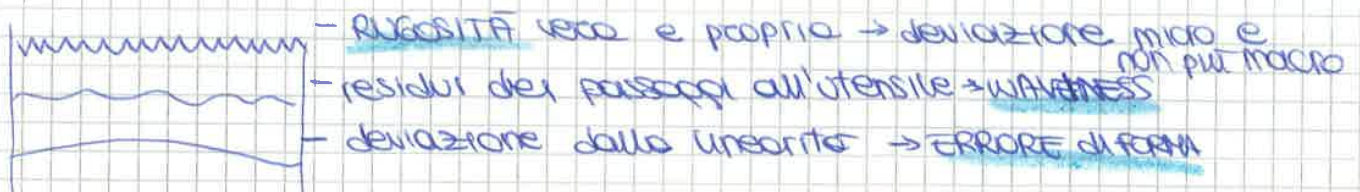 - RUGOSITÀ vera e propria → deviazione micro e
non più macro
- residui dei passaggi all'utensile → WAVINESS
- deviazione dalla linearità → ERRORE di FORMA